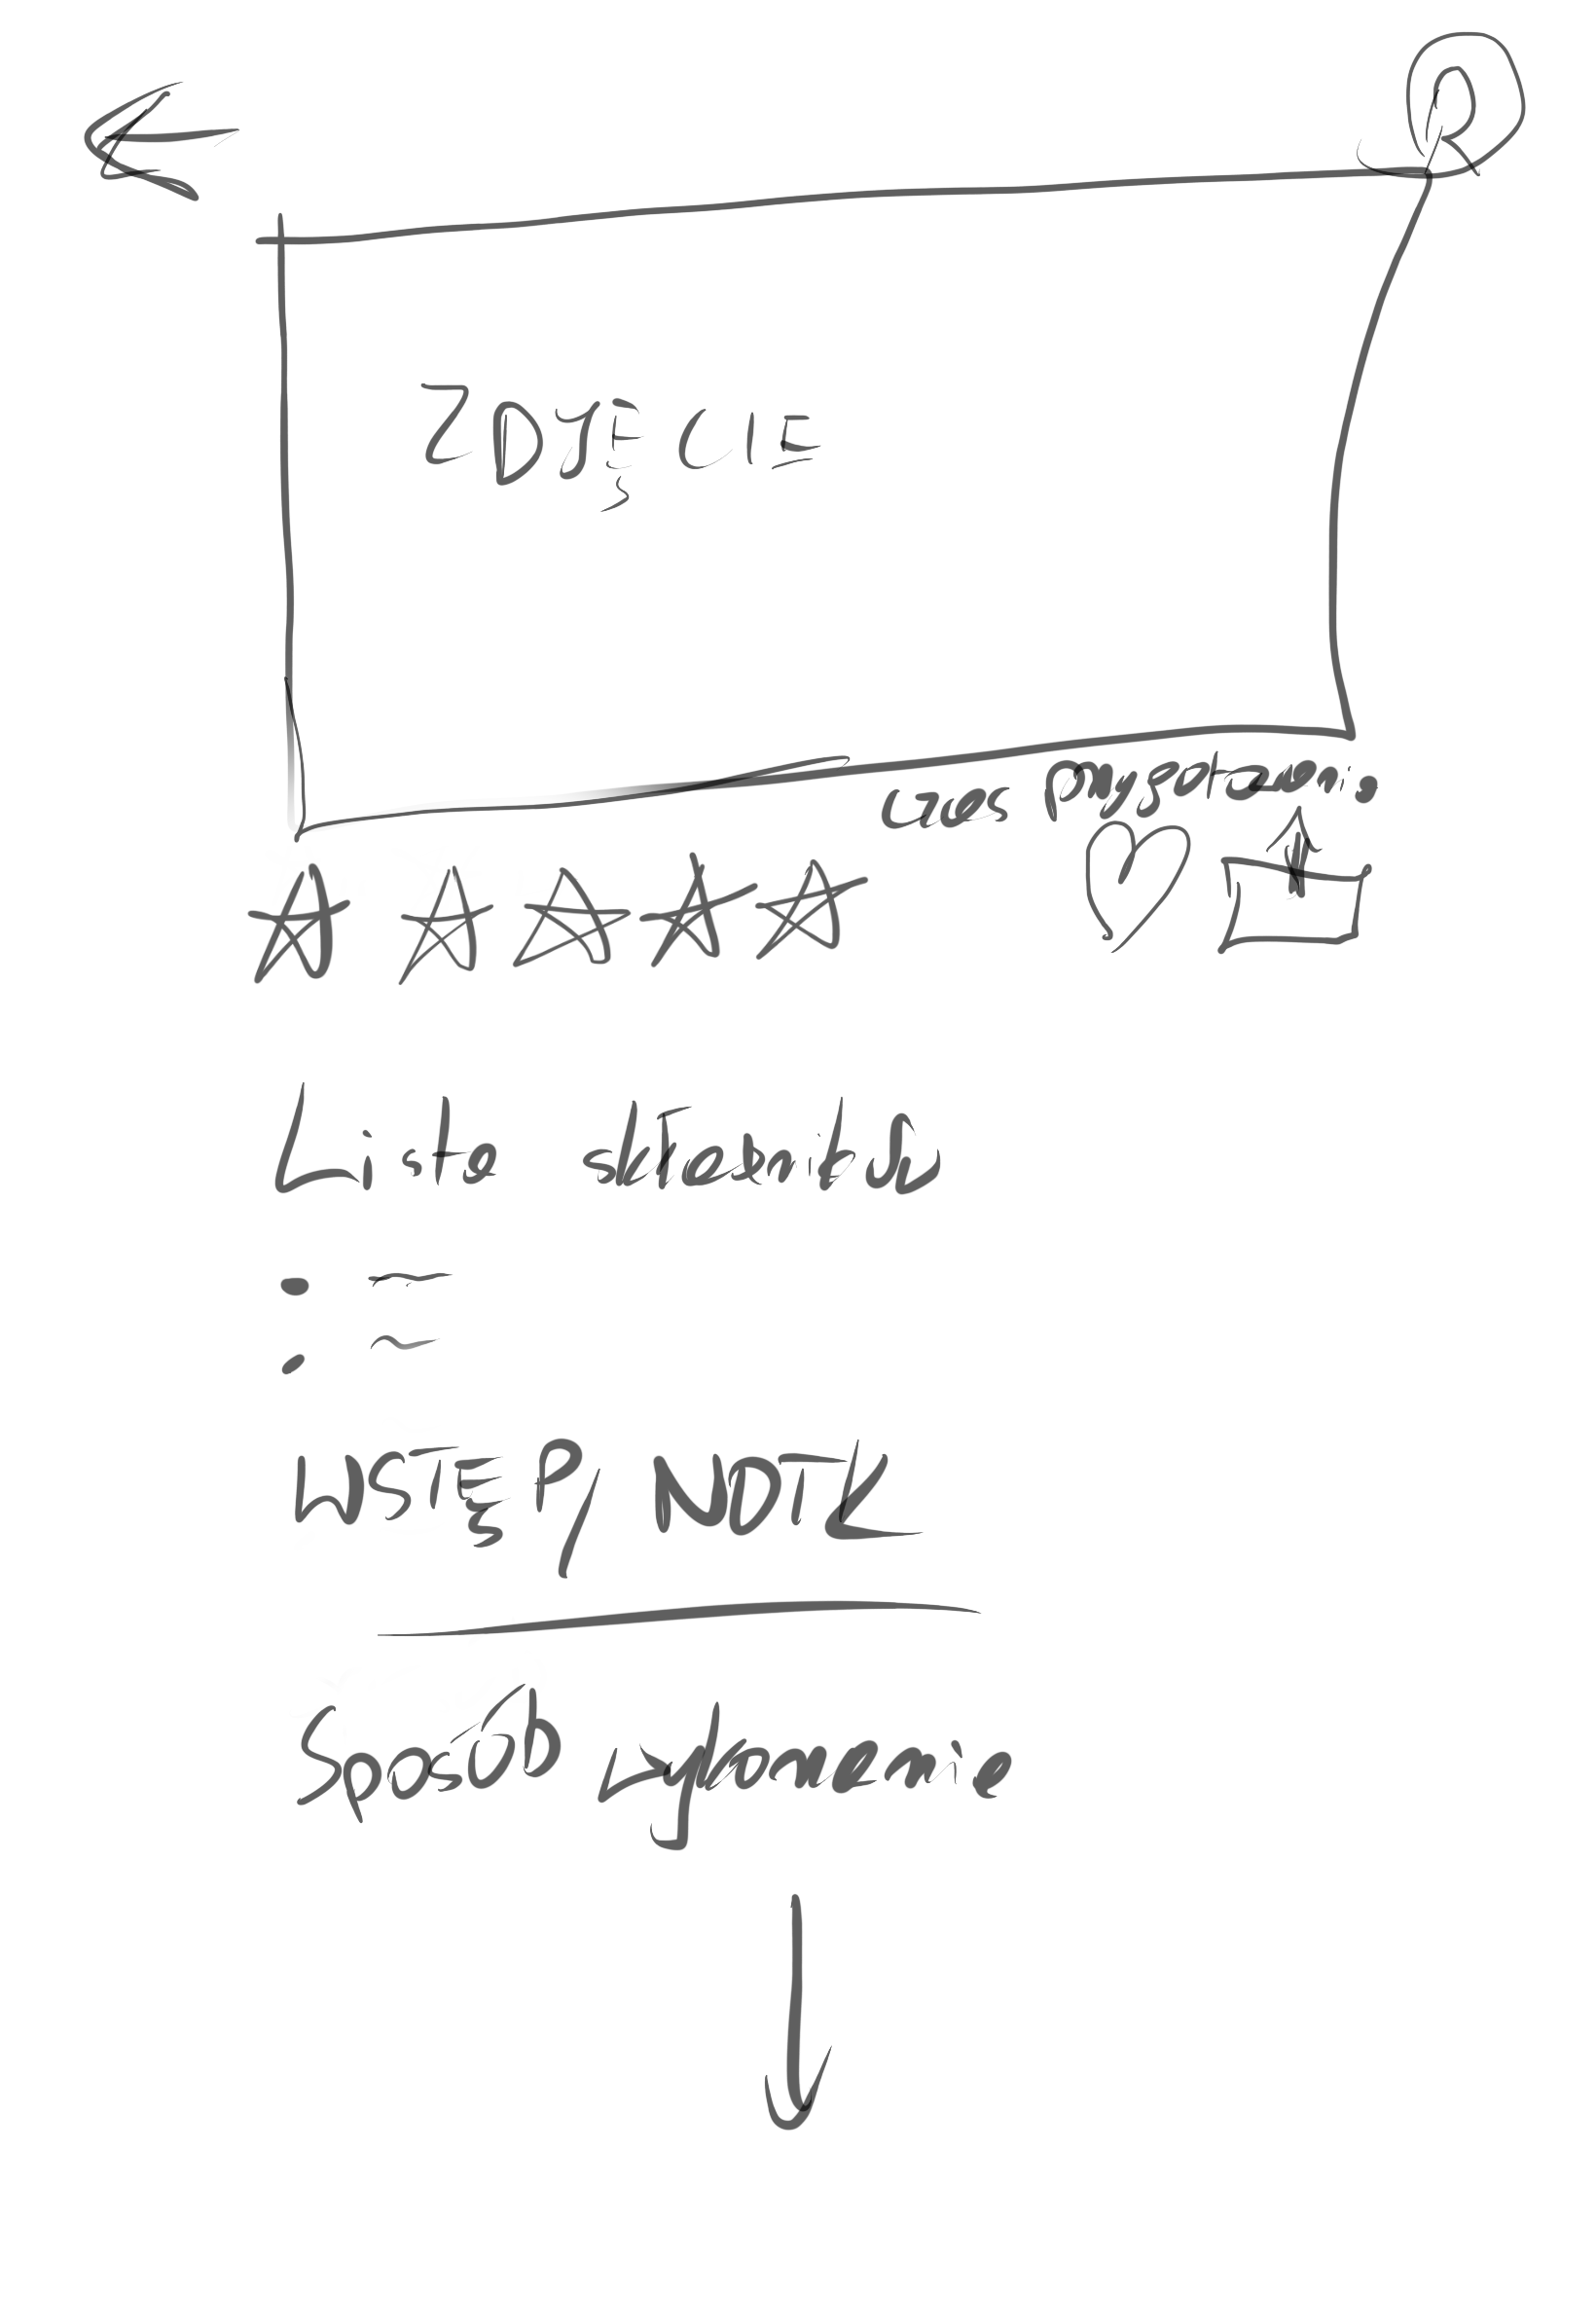 R
ZDJĘCIE
czas przygotowania
Lista składników
WSTĘP, NOTK
Sposób wykonania